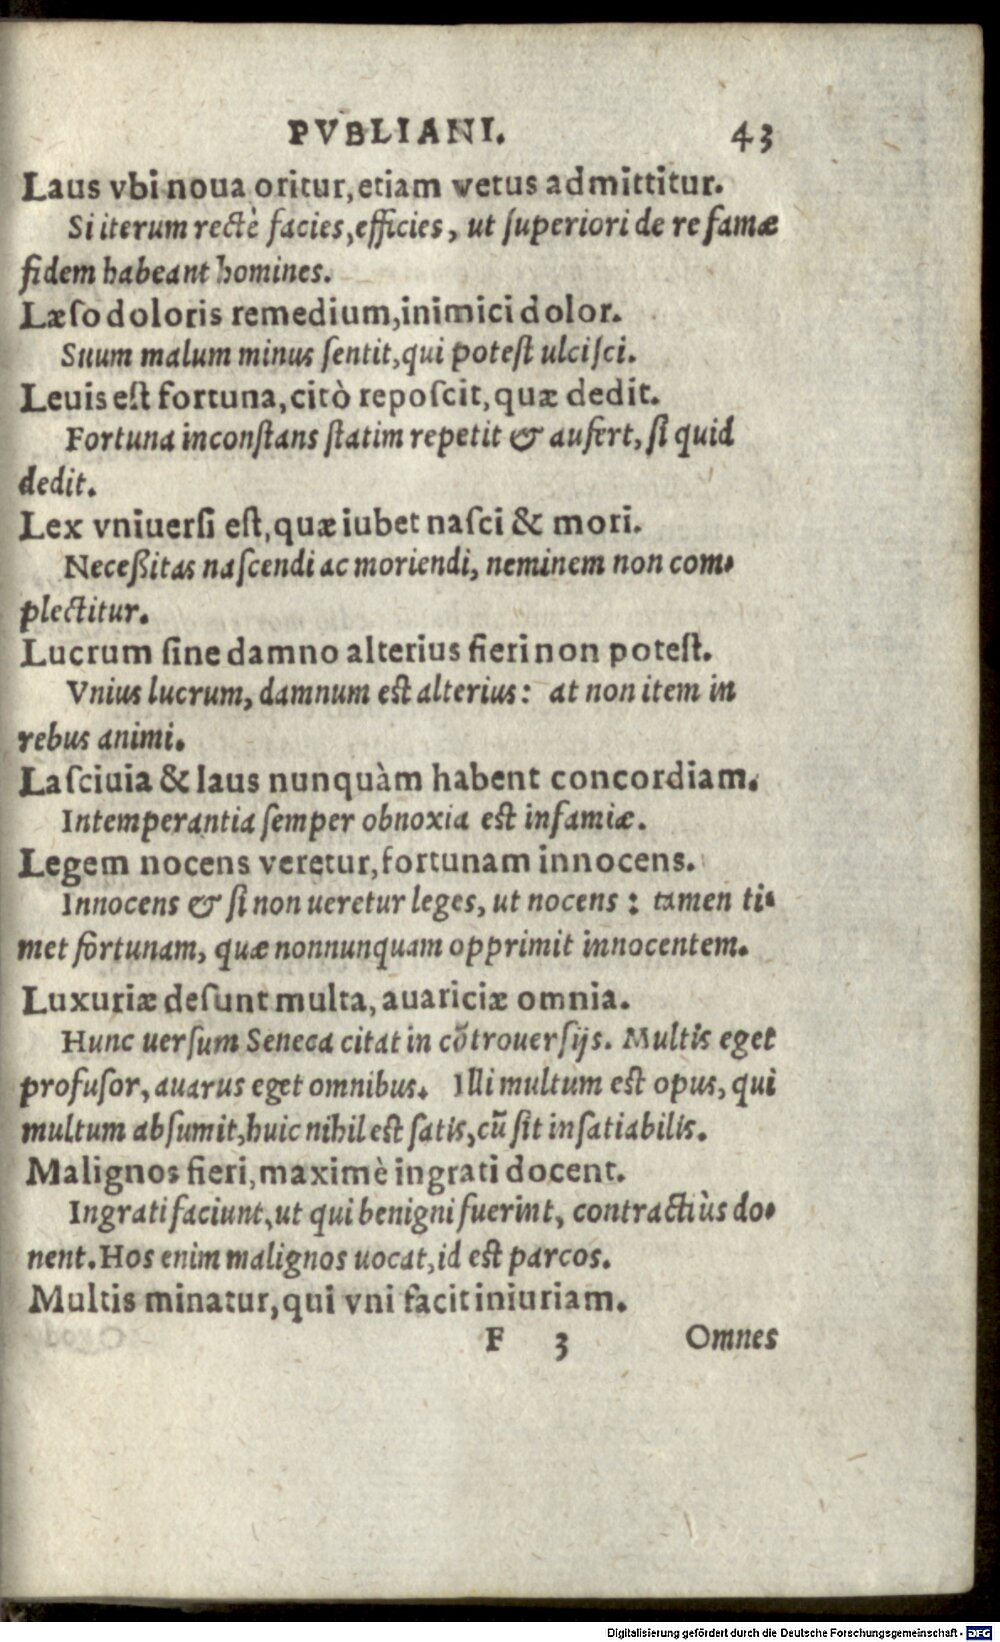 PVBLIANI. 43
Laus vbi noua oritur, etiam vetus admittitur.
Si iterum rectè facies, efficies, ut ſuperiori de re famæ
fidem habeant homines.
Læſo doloris remedium, inimici dolor.
Suum malum minus ſentit, qui poteſt ulciſci.
Leuis eſt fortuna, citò repoſcit, quæ dedit.
Fortuna inconſtans ſtatim repetit & aufert, ſi quid
dedit.
Lex vniuerſi eſt, quæ iubet naſci & mori.
Neceßitas naſcendi ac moriendi, neminem non com-
plectitur.
Lucrum ſine damno alterius fieri non poteſt.
Vnius lucrum, damnum eſt alterius: at non item in
rebus animi.
Laſciuia & laus nunquàm habent concordiam.
Intemperantia ſemper obnoxia eſt infamiæ.
Legem nocens veretur, fortunam innocens.
Innocens & ſi non ueretur leges, ut nocens: tamen ti-
met fortunam, quæ nonnunquam opprimit innocentem.
Luxuriæ deſunt multa, auariciæ omnia.
Hunc uerſum Seneca citat in cōtrouerſijs. Multis eget
profuſor, auarus eget omnibus. Illi multum eſt opus, qui
multum abſumit, huic nihil eſt ſatis, cū ſit inſatiabilis.
Malignos fieri, maximè ingrati docent.
Ingrati faciunt, ut qui benigni fuerint, contractiùs do-
nent. Hos enim malignos uocat, id eſt parcos.
Multis minatur, qui vni facit iniuriam.
F 3 Omnes
Digitalisierung gefördert durch die Deutsche Forschungsgemeinschaft - DFG